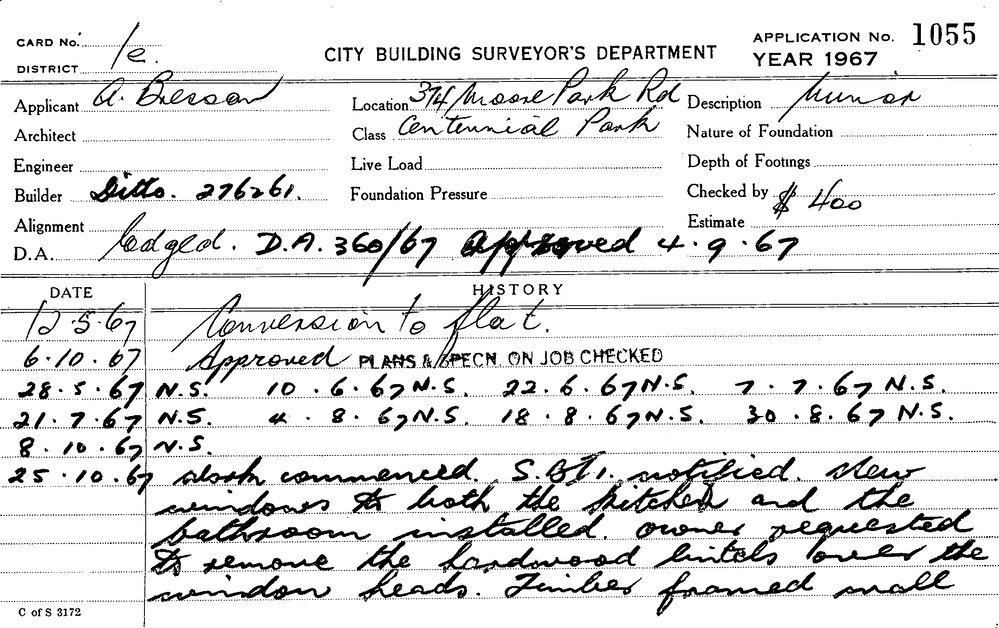 CARD No. 1e. CITY BUILDING SURVEYOR'S DEPARTMENT APPLICATION No. 1055
DISTRICT YEAR 1967
Applicant A. Bresson Location 374 Moore Park Rd Description Minor
Architect Class Centennial Park Nature of Foundation
Engineer Live Load Depth of Footings
Builder Ditto. 276261. Foundation Pressure Checked by
Alignment Estimate $ 400
D.A. lodged. D.A. 360/67 Approved 4.9.67
DATE HISTORY
12.5.67 Conversion to flat.
6.10.67 Approved PLANS & SPECN. ON JOB CHECKED
28.5.67 N.S. 10.6.67 N.S. 22.6.67 N.S. 7.7.67 N.S.
21.7.67 N.S. 4.8.67 N.S. 18.8.67 N.S. 30.8.67 N.S.
8.10.67 N.S.
25.10.67 Work commenced. notified. New
windows to both the kitchen and the
bathroom installed. owner requested
to remove the hardwood lintels over the
window heads. Timber framed wall
C of S 3172